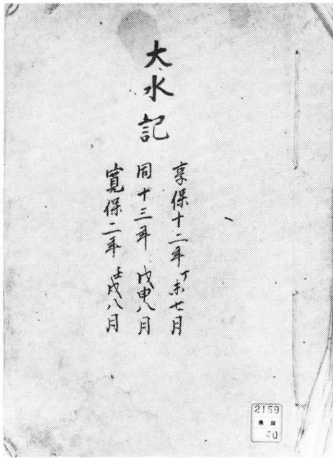 大水記
享保十二年丁未七月
同十三年戊申八月
寛保二年壬戌八月
2159
40